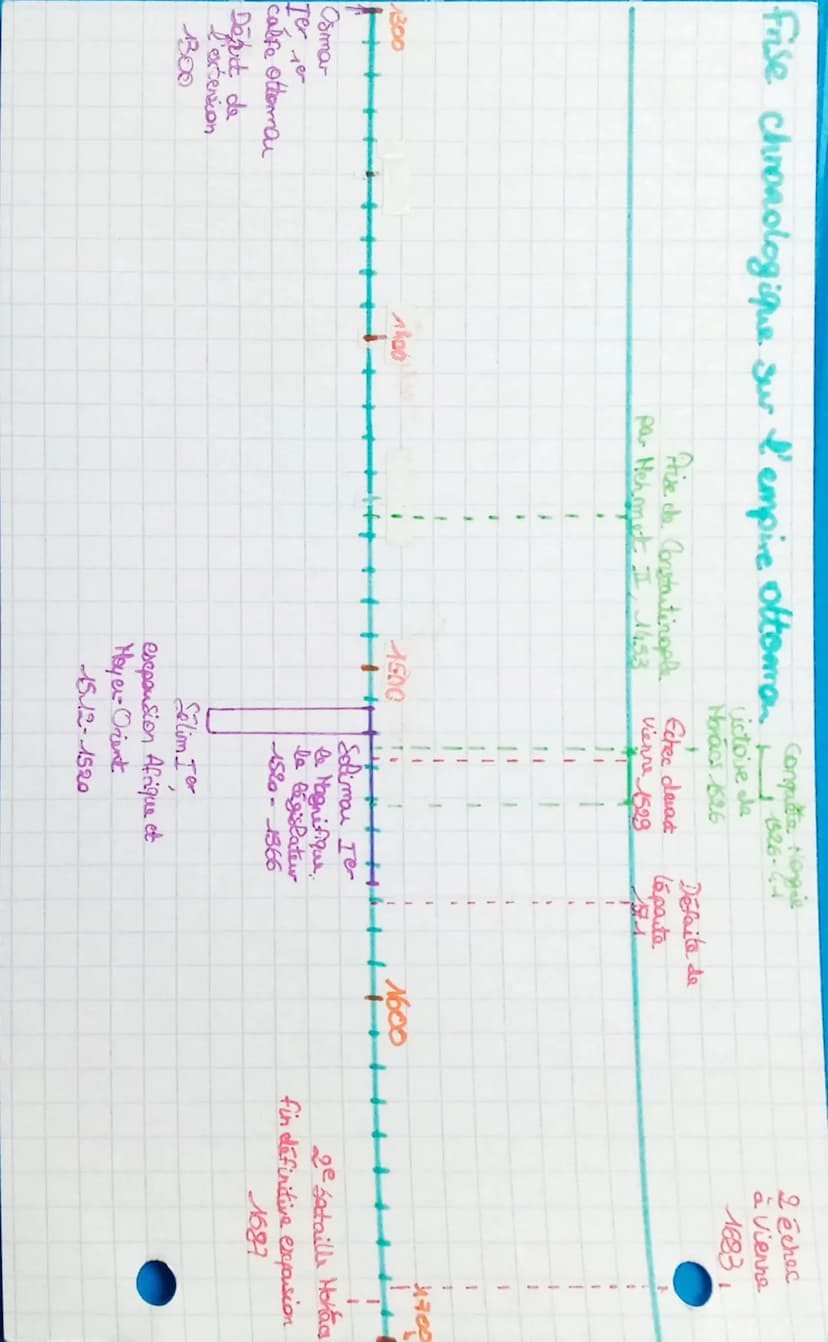 Frise chronologique sur l'empire ottoman
Conquête Hongrie
1526-41
Victoire de
Mohács 1526
Prise de Constantinople
par Mehmet II, 1453
Echec devant
Vienne 1529
Défaite de
Lépante
1571
2 Echec
à Vienne
1683
1300
1400
1500
1600
1700
Osman
Ier 1er
calife ottoman
Départ de
l'extension
1300
Soliman Ier
le Magnifique,
le législateur
1520-1566
Sélim Ier,
expansion Afrique et
Moyen-Orient
1512-1520
2e bataille Mohács
fin définitive expansion
1687